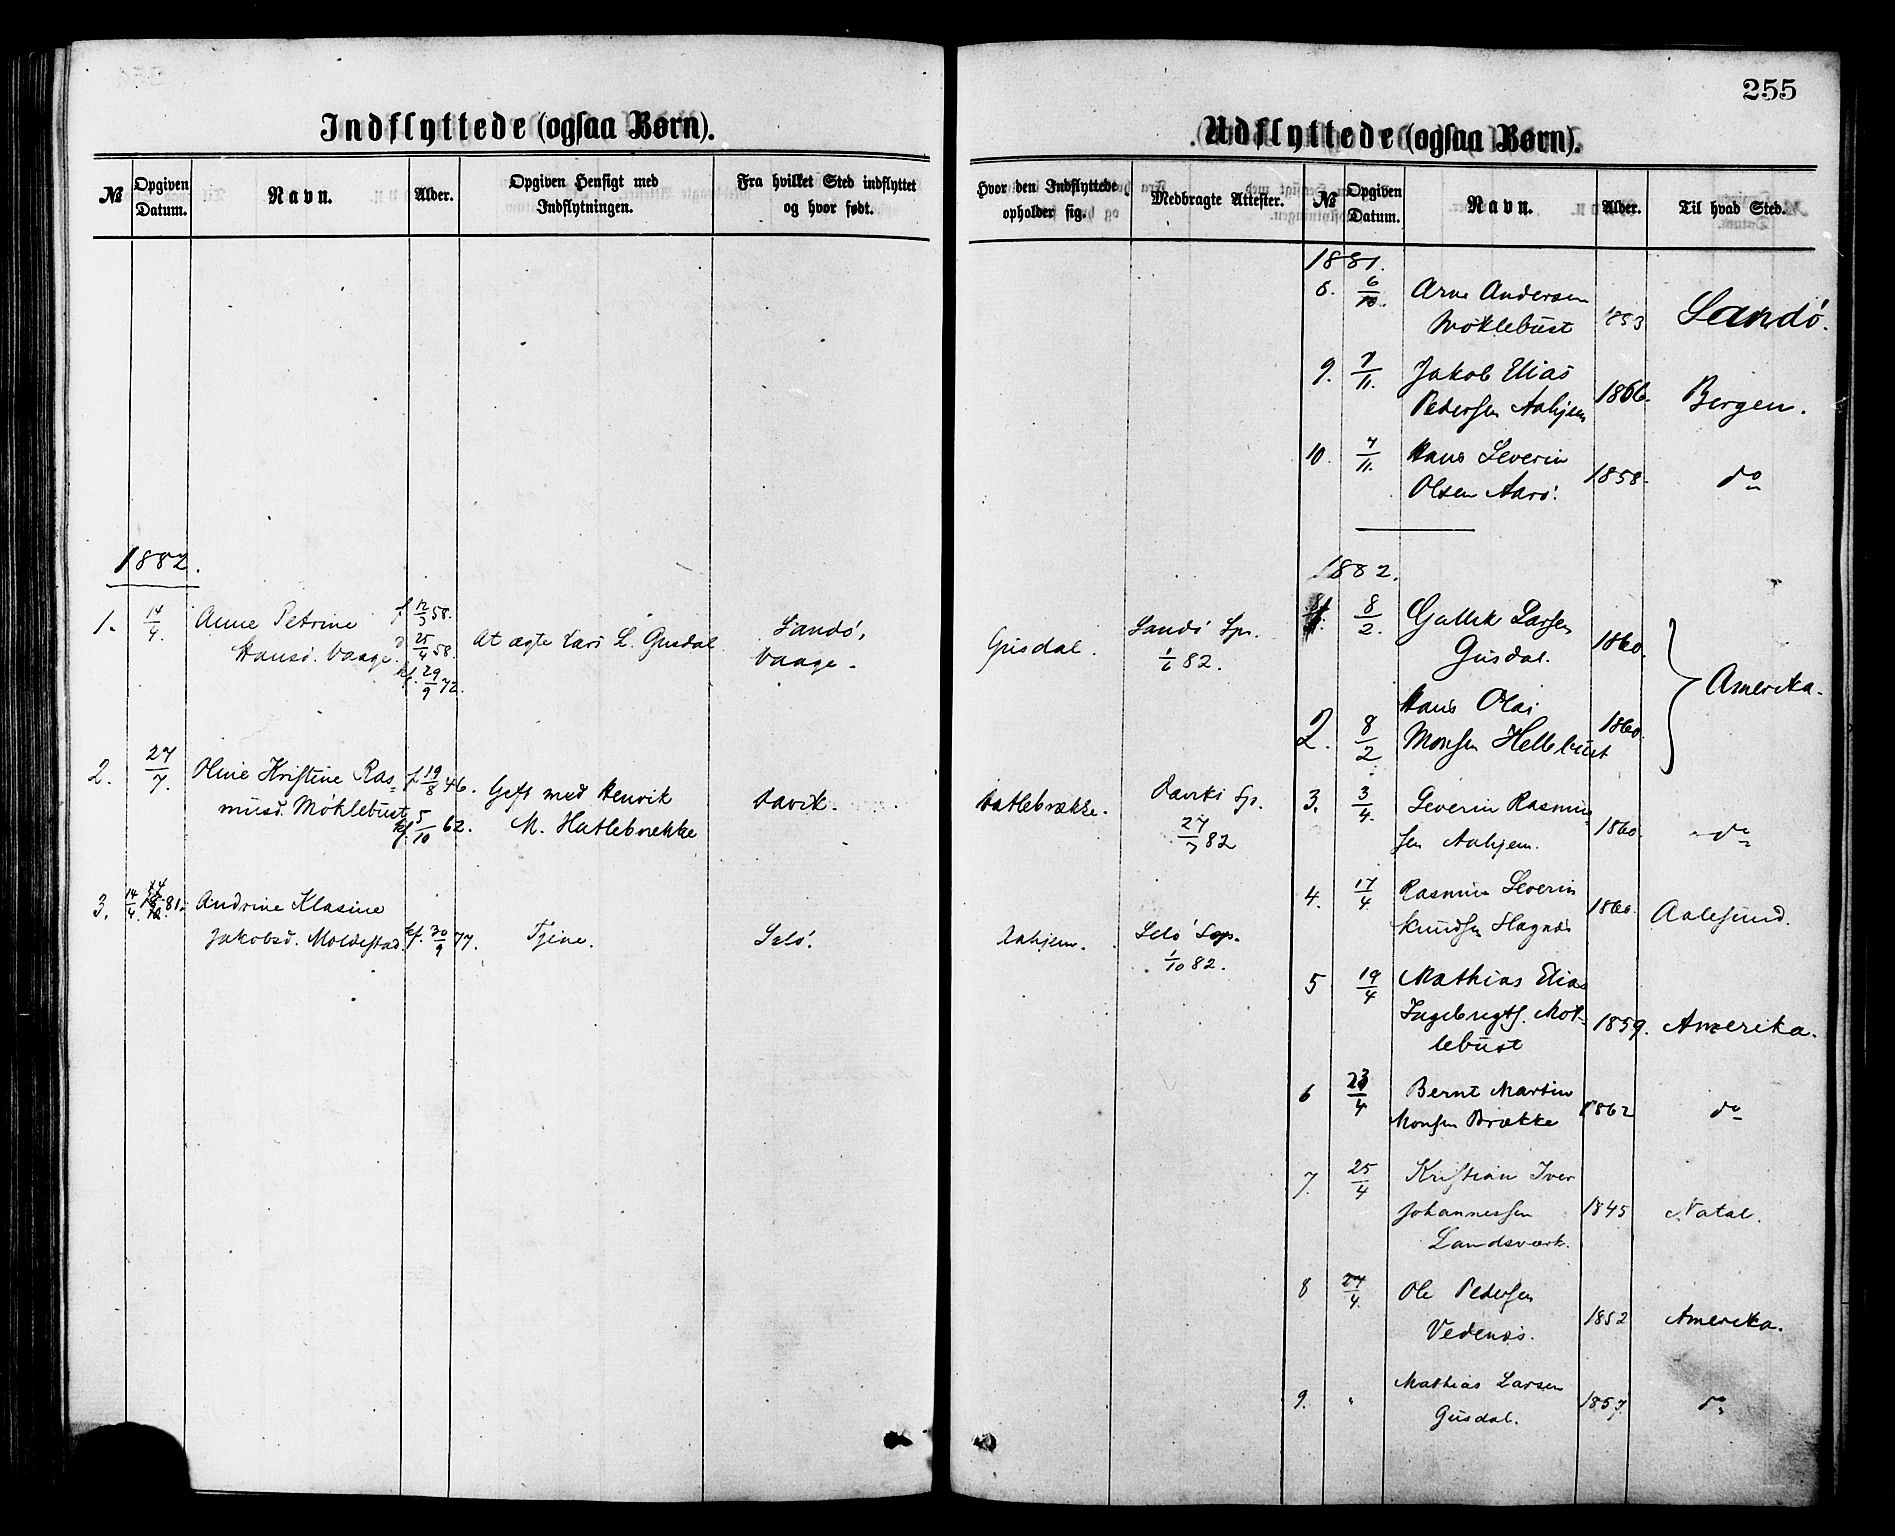 255
Indflyttede (ogsaa Børn).
№
Opgiven Datum.
Navn.
Alder.
Opgiven Hensigt med Indflytningen.
Fra hvilket Sted indflyttet og hvor født.
1882.
1. 14/4. Anne Petrine f. 12/3 58. Sandø,
Hansd. Vaage. d 25/4 58. At ægte Lars L. Gusdal Vaage.
kf. 29/9 72.
2. 27/7. Oline Kristine Ras= f 19/8 46. Gift med Henrik Davik.
musd. Møklebust kf. 5/10 62. M. Hatlebrekke
3. 14/4. 81. Andrine Klasine
Jakobsd. Moldestad. kf. 30/9 77. Tjene. Selø.
Udflyttede (ogsaa Børn).
Hvor den Indflyttede opholder sig.
Medbragte Attester.
№
Opgiven Datum.
Navn.
Alder.
Til hvad Sted.
Gusdal. Sandø Sp.
1/6 82.
Hatlebrække. Daviks Sp.
27/7 82
Aahjem. Selø Sp.
1/10 82.
1881.
8. 6/10. Arne Andersen
Møklebust 1853 Sandø.
9. 7/11. Jakob Elias
Pedersen Aahjem 1866. Bergen.
10. 7/11. Hans Severin
Olsen Aarø. 1858. do
1882.
1. 8/2. Gullik Larsen
Gusdal. 1860.
Amerika.
2. 8/2 Hans Olai
Monsen Hellebust 1860.
3. 3/4. Severin Rasmus=
sen Aahjem. 1860. do
4. 17/4. Rasmus Severin
Knudsen Hagnæs 1860. Aalesund.
5 19/4 Mathias Elias
Ingebrigts. Møk=
lebust 1859. Amerika.
6 23/4 Bernt Martin
Monsen Brække 1862 do
7. 25/4 Kristian Iver
Johannessen 1845 Natal.
Landsværk.
8 27/4. Ole Pedersen
Vedenæs. 1852 Amerika.
9. " Mathias Larsen
Gusdal. 1857. do